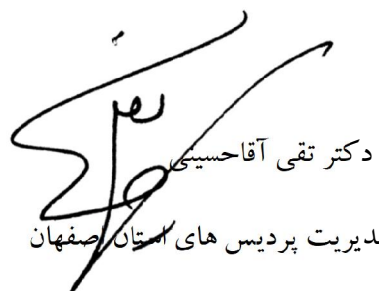 دکتر تقی آقاحسینی
مدیریت پردیس های استان اصفهان